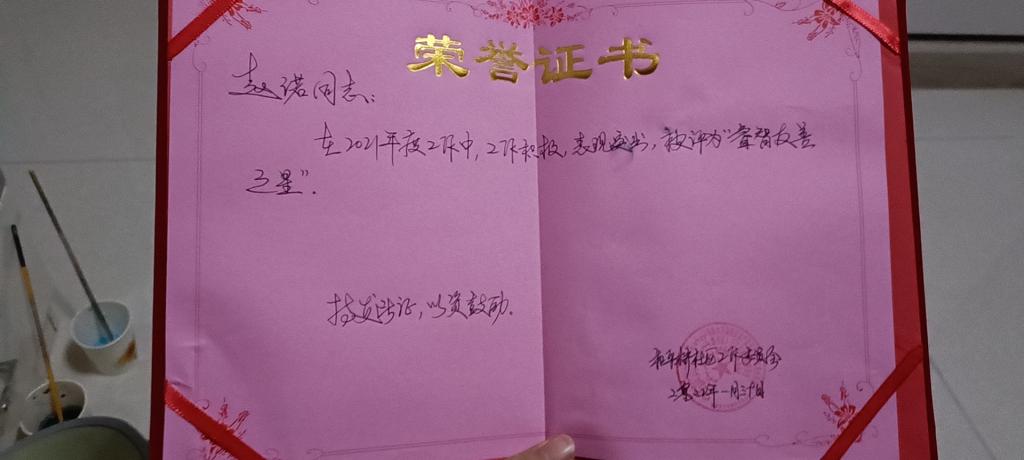 荣誉证书
赵诺同志:
在2021年度工作中,工作积极,表现突出,被评为"睿智友善
之星".
特发此证,以资鼓励.
社区工作委员会
二零二二年一月三十日